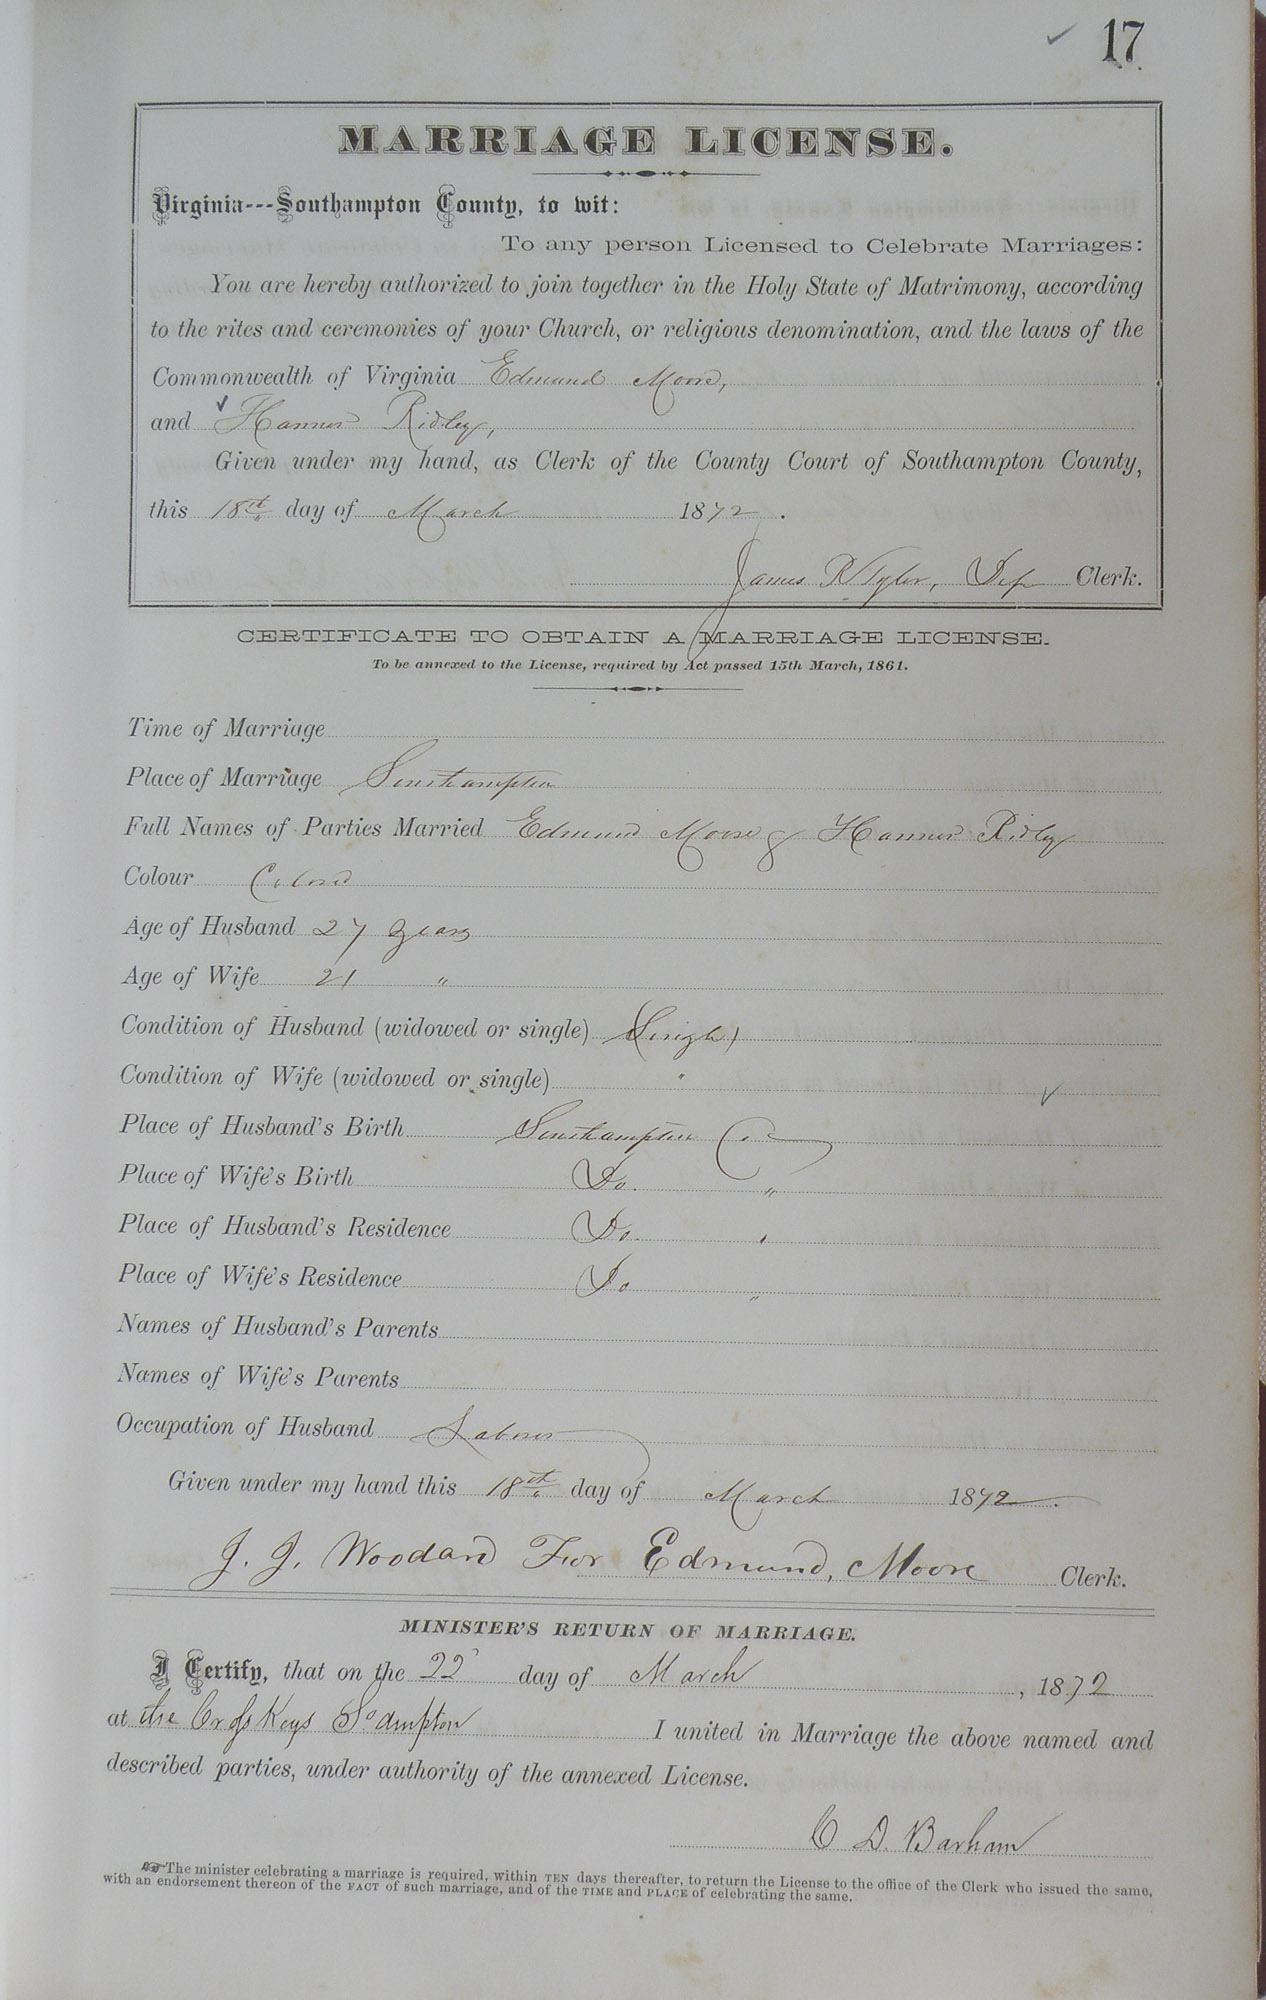 17
MARRIAGE LICENSE.
Virginia---Southampton County, to wit:
To any person Licensed to Celebrate Marriages:
You are hereby authorized to join together in the Holy State of Matrimony, according
to the rites and ceremonies of your Church, or religious denomination, and the laws of the
Commonwealth of Virginia Edmund Moore,
and Hanner Ridley,
Given under my hand, as Clerk of the County Court of Southampton County,
this 18th day of March 1872.
James R Tyler, Dep Clerk.
CERTIFICATE TO OBTAIN A MARRIAGE LICENSE.
To be annexed to the License, required by Act passed 15th March, 1861.
Time of Marriage
Place of Marriage Southampton
Full Names of Parties Married Edmund Moore & Hanner Ridley
Colour Colored
Age of Husband 27 years
Age of Wife 21 "
Condition of Husband (widowed or single) (Single)
Condition of Wife (widowed or single) "
Place of Husband's Birth Southampton Co
Place of Wife's Birth Do. "
Place of Husband's Residence Do. "
Place of Wife's Residence Do "
Names of Husband's Parents
Names of Wife's Parents
Occupation of Husband Laborer
Given under my hand this 18th day of March 1872.
J. J. Woodard For Edmund, Moore Clerk.
MINISTER'S RETURN OF MARRIAGE.
I Certify, that on the 22 day of March, 1872
at the Cross Keys So'ampton I united in Marriage the above named and
described parties, under authority of the annexed License.
C D. Barham
☞The minister celebrating a marriage is required, within TEN days thereafter, to return the License to the office of the Clerk who issued the same,
with an endorsement thereon of the FACT of such marriage, and of the TIME and PLACE of celebrating the same.